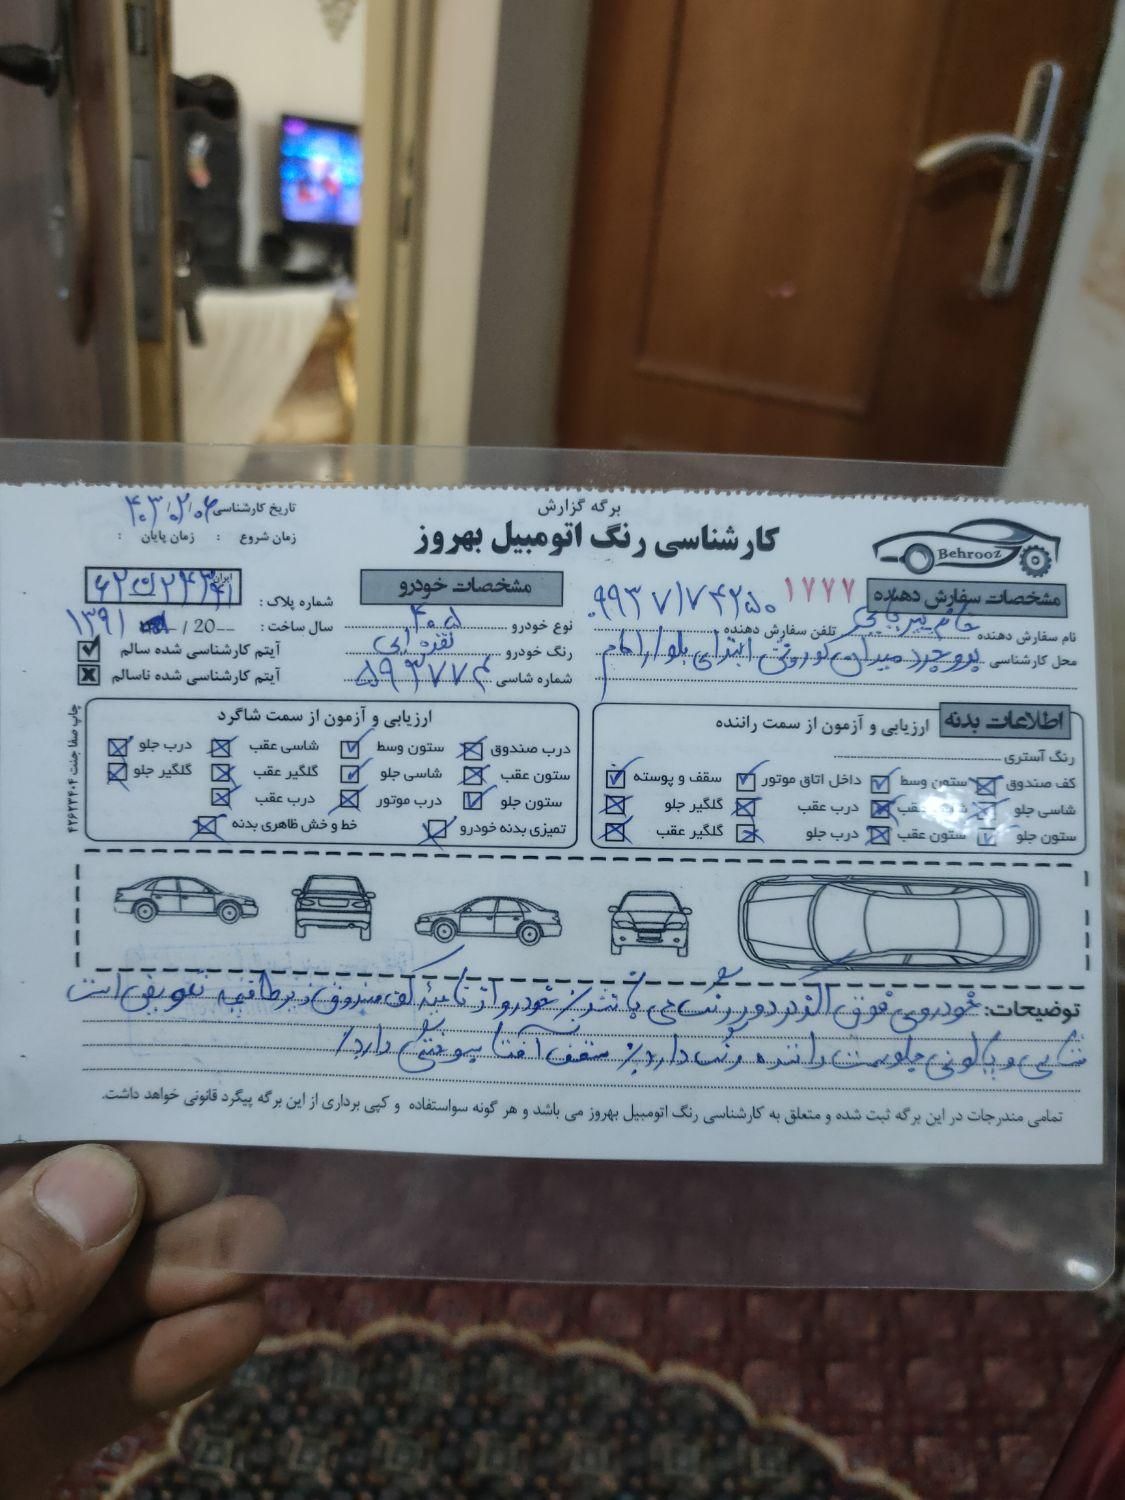 برگه گزارش
کارشناسی رنگ اتومبیل بهروز
Behrooz
تاریخ کارشناسی ۴۰۳/۰۲/۰۶
زمان شروع : زمان پایان :
مشخصات سفارش دهنده ۱۷۷۷
نام سفارش دهنده خانم تلفن سفارش دهنده ۰۹۹۳۷۱۷۴۲۵۰
محل کارشناسی بروجرد میدان ابتدای بلوار امام
مشخصات خودرو
نوع خودرو ۴۰۵
رنگ خودرو نقره ای
شماره شاسی ۵۹۳۷۷۴
شماره پلاک : ایران ۴۱
سال ساخت : 20 / ۱۳۹۱
آیتم کارشناسی شده سالم
آیتم کارشناسی شده ناسالم
اطلاعات بدنه ارزیابی و آزمون از سمت راننده
رنگ آستری
کف صندوق ستون وسط داخل اتاق موتور سقف و پوسته
شاسی جلو شاسی عقب درب عقب گلگیر جلو
ستون جلو ستون عقب درب جلو گلگیر عقب
ارزیابی و آزمون از سمت شاگرد
درب صندوق ستون وسط شاسی عقب درب جلو
ستون عقب شاسی جلو گلگیر عقب گلگیر جلو
ستون جلو درب موتور درب عقب
تمیزی بدنه خودرو خط و خش ظاهری بدنه
چاپ صفا جنت ۴۲۶۲۳۴۰۴
توضیحات: خودروی فوق الذکر دور رنگ می باشد٪ خودرو از ناحیه کف صندوق زیر طاقچه تعویض است
شاسی و پالونی جلو سمت راننده رنگ دارد٪ سقف آفتاب سوختگی دارد٪
تمامی مندرجات در این برگه ثبت شده و متعلق به کارشناسی رنگ اتومبیل بهروز می باشد و هر گونه سواستفاده و کپی برداری از این برگه پیگرد قانونی خواهد داشت.